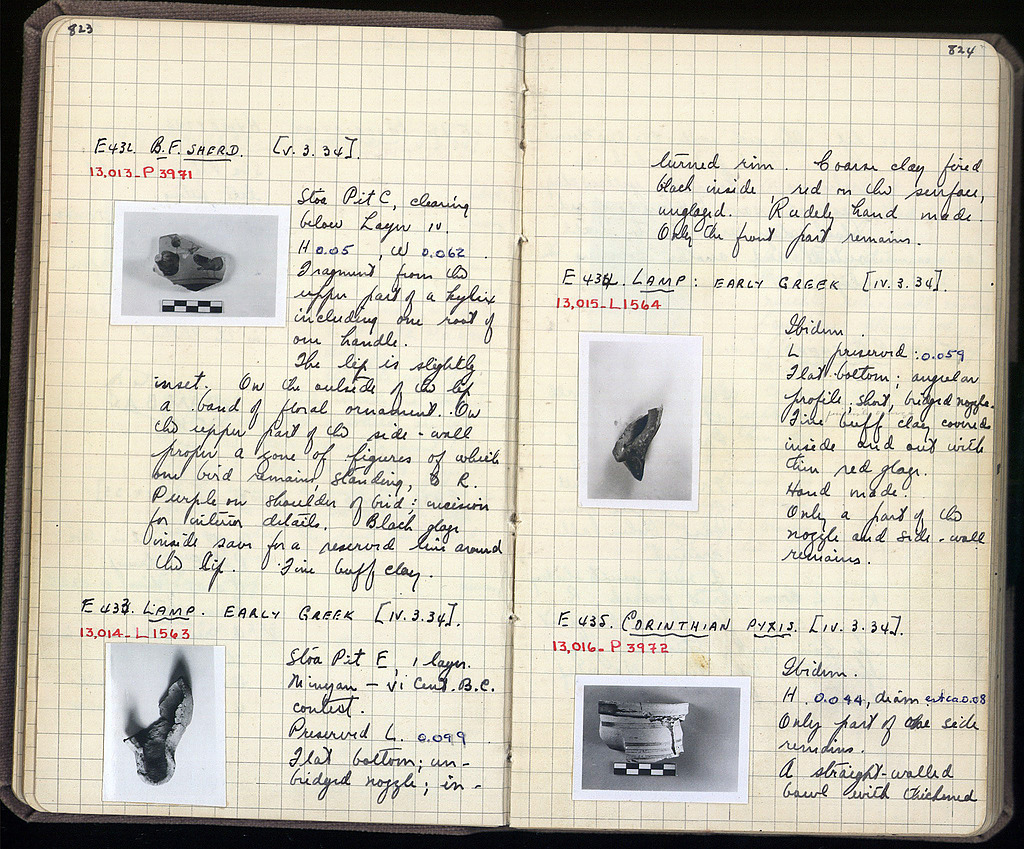 823
E 432. B.F. SHERD. [V.3.34].
13,013-P 3971
Stoa Pit C, clearing
below Layer IV.
H 0.05 , W 0.062 .
Fragment from the
upper part of a kylix
including one root of
one handle.
The lip is slightly
inset. On the outside of the lip
a band of floral ornament. On
the upper part of the side-wall
proper a zone of figures of which
one bird remains, standing, to R.
Purple on shoulder of bird; incision
for interior details. Black glaze
inside save for a reserved line around
the lip. Fine buff clay.
E 433. LAMP. EARLY GREEK [IV.3.34].
13,014-L 1563
Stoa Pit E, 1 layer.
Minyan – VI Cent. B.C.
context.
Preserved L. 0.099 .
Flat bottom; un-
bridged nozzle; in-
824
turned rim. Coarse clay fired
black inside, red on the surface,
unglazed. Rudely hand made.
Only the front part remains.
E 434. LAMP: EARLY GREEK [IV.3.34].
13,015-L 1564
Ibidem.
L preserved: 0.059
Flat bottom; angular
profile; short, bridged nozzle.
Fine buff clay covered
inside and out with
thin red glaze.
Hand made.
Only a part of the
nozzle and side-wall
remains.
E 435. CORINTHIAN PYXIS. [IV.3.34].
13,016-P 3972
Ibidem.
H. 0.044, diam est ca 0.08
Only part of one side
remains.
A straight-walled
bowl with thickened